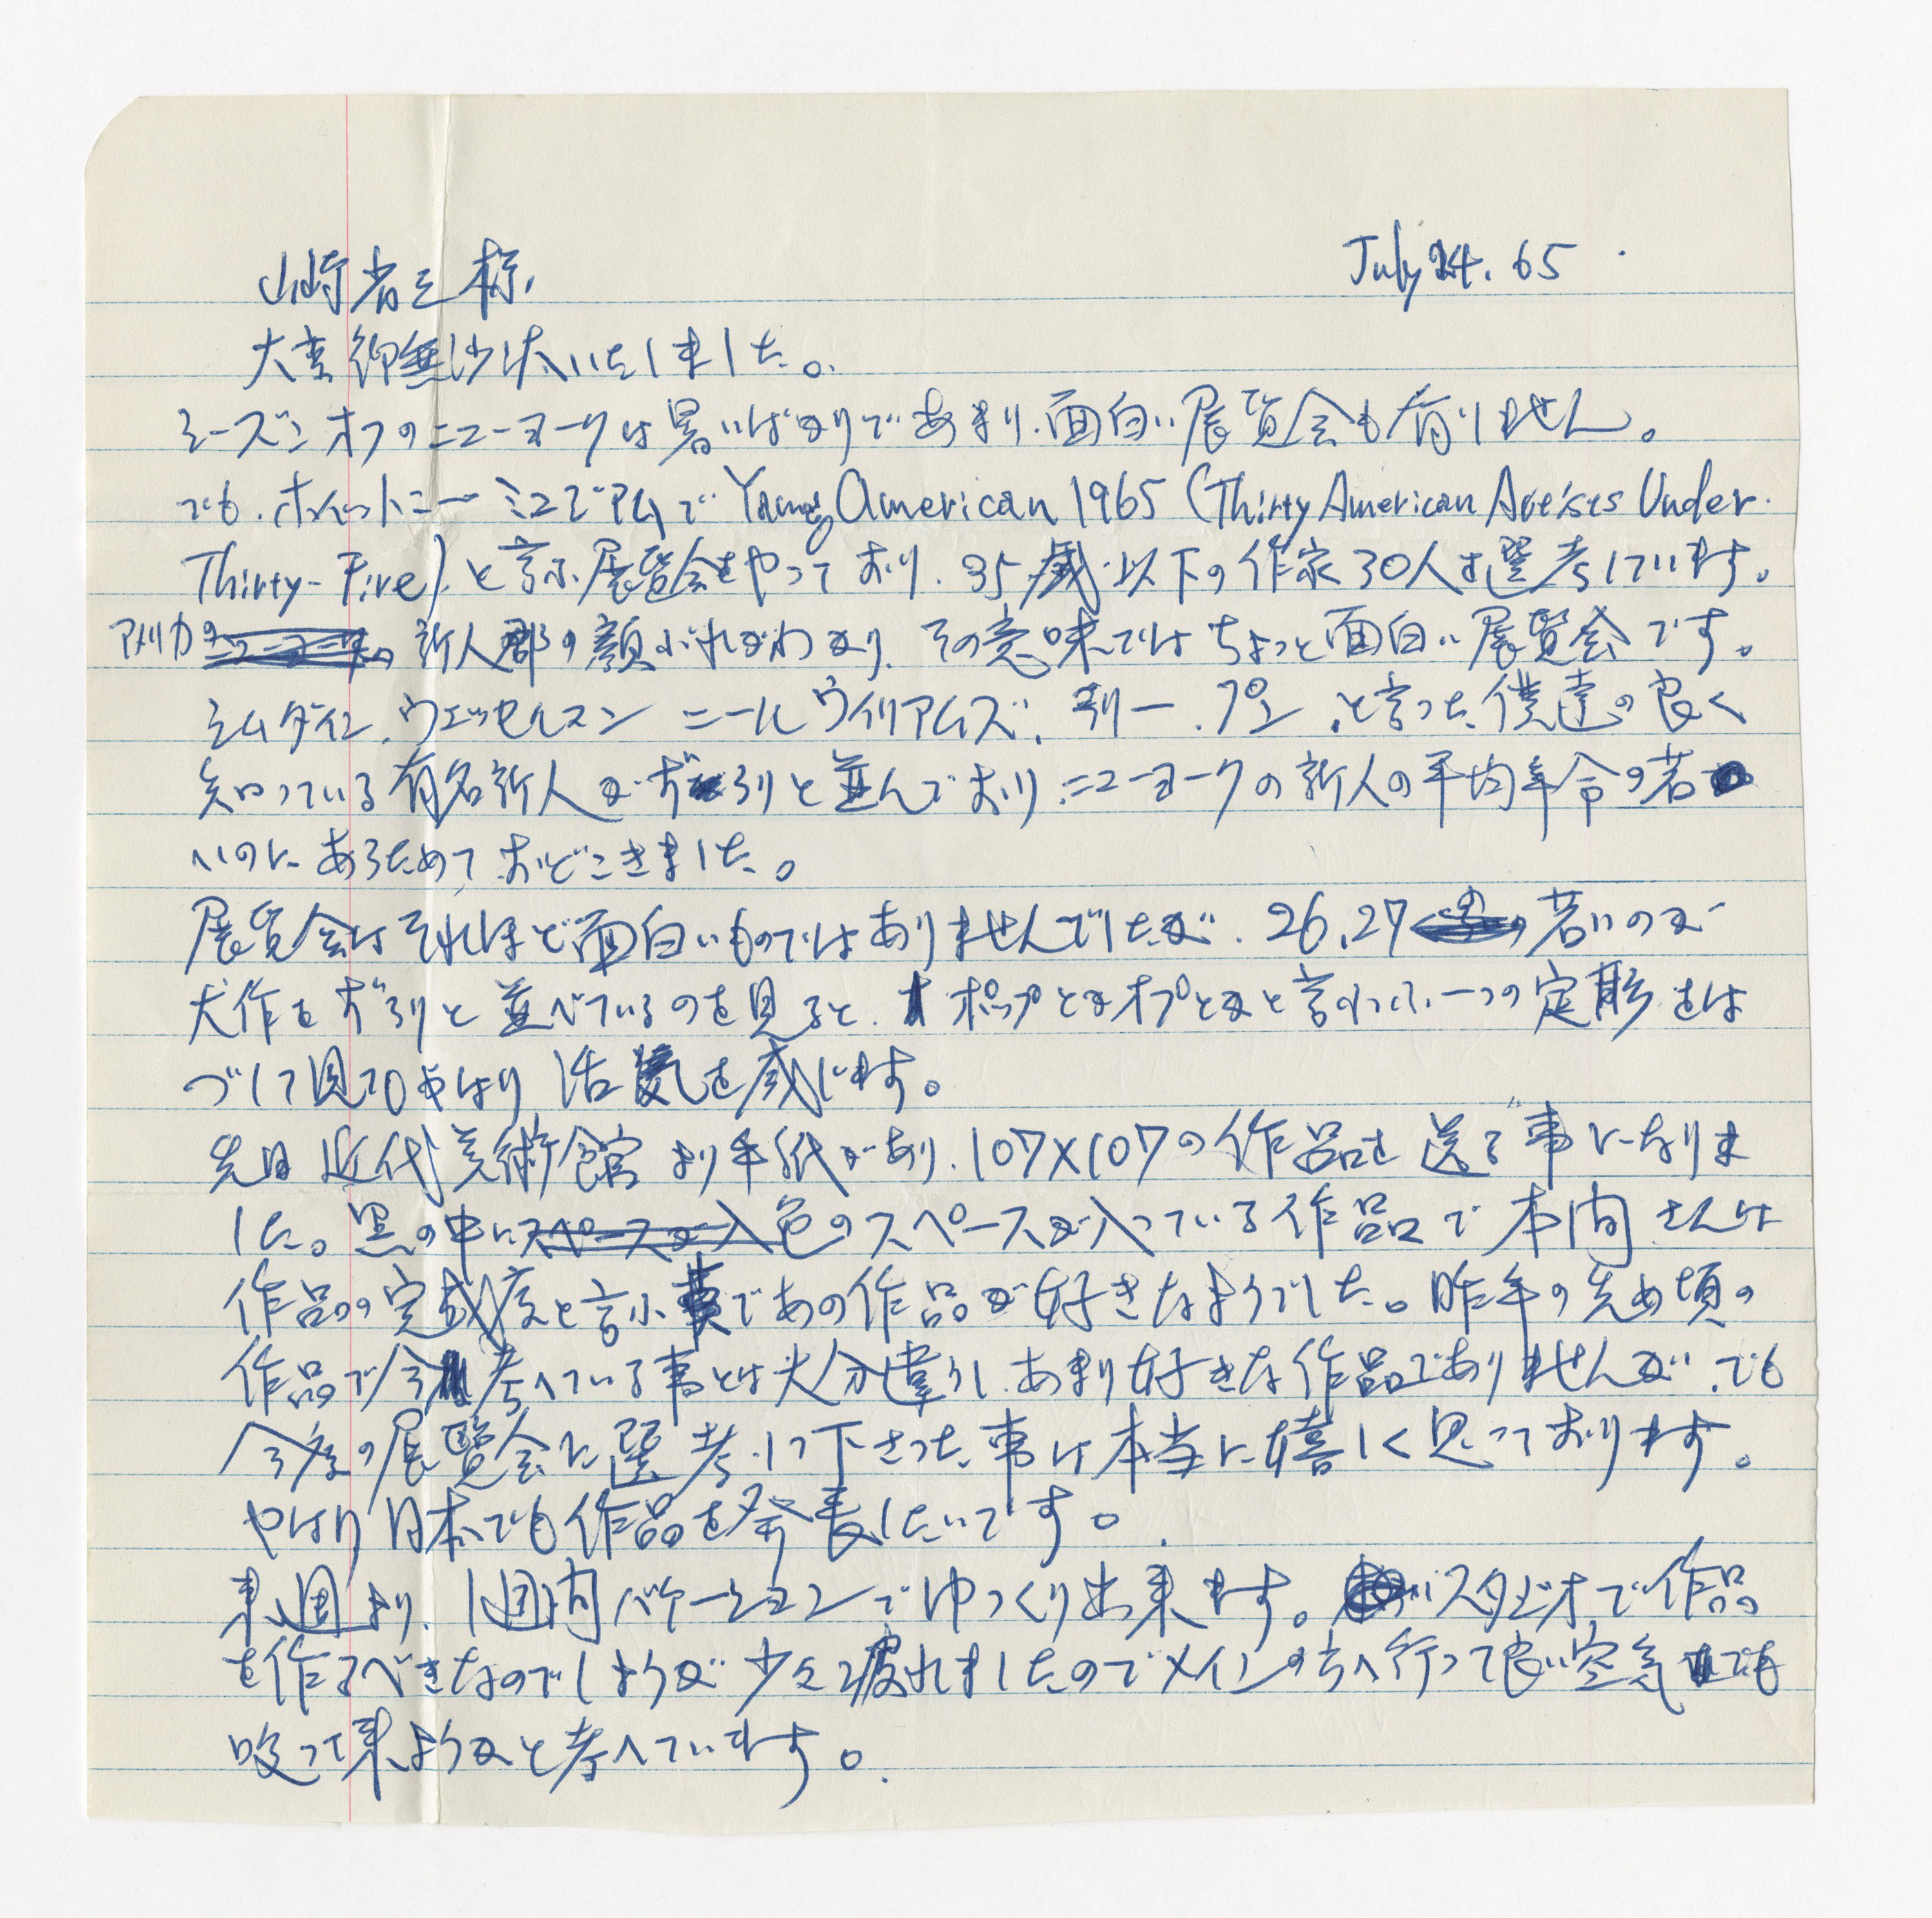 July 24. 65
山崎省三様、
大変御無沙汰いたしました。
シーズンオフのニューヨークは暑いばかりであまり面白い展覧会も有りません。
でも、ホイットニーミュゼアムで Young American 1965 (Thirty American Artists Under
Thirty-Five) と言ふ展覧会をやっており、35歳以下の作家30人を選考しています。
アメリカの新人郡の顔ぶれがわかり、その意味ではちょっと面白い展覧会です。
ジムダイン、ウェッセルマン ニールウイリアムズ、ラリー、プン、と言った僕達の良く
知っている有名新人がずらりと並んでおり、ニューヨークの新人の平均年令の若
いのにあらためておどろきました。
展覧会はそれほど面白いものではありませんでしたが、26,27の若いのが
大作をずらりと並べているのを見ると、ポップとかオプとかと言ふ一つの定形をは
づして見てもやはり活気を感じます。
先日近代美術館より手紙があり、107×107の作品を送る事になりま
した。黒の中に色のスペースが入っている作品で本間さんは
作品の完成度と言ふ事であの作品が好きなようでした。昨年の先め頃の
作品で今考へている事とは大分違うし、あまり好きな作品でありませんが、でも
今度の展覧会に選考して下さった事は本当に嬉しく思っております。
やはり日本でも作品を発表したいです。
来週より、1週間バケーションでゆっくり出来ます。スタジオで作品
を作るべきなのでしょうが少々疲れましたのでメインの方へ行って良い空気でも
吸って来ようかと考へています。